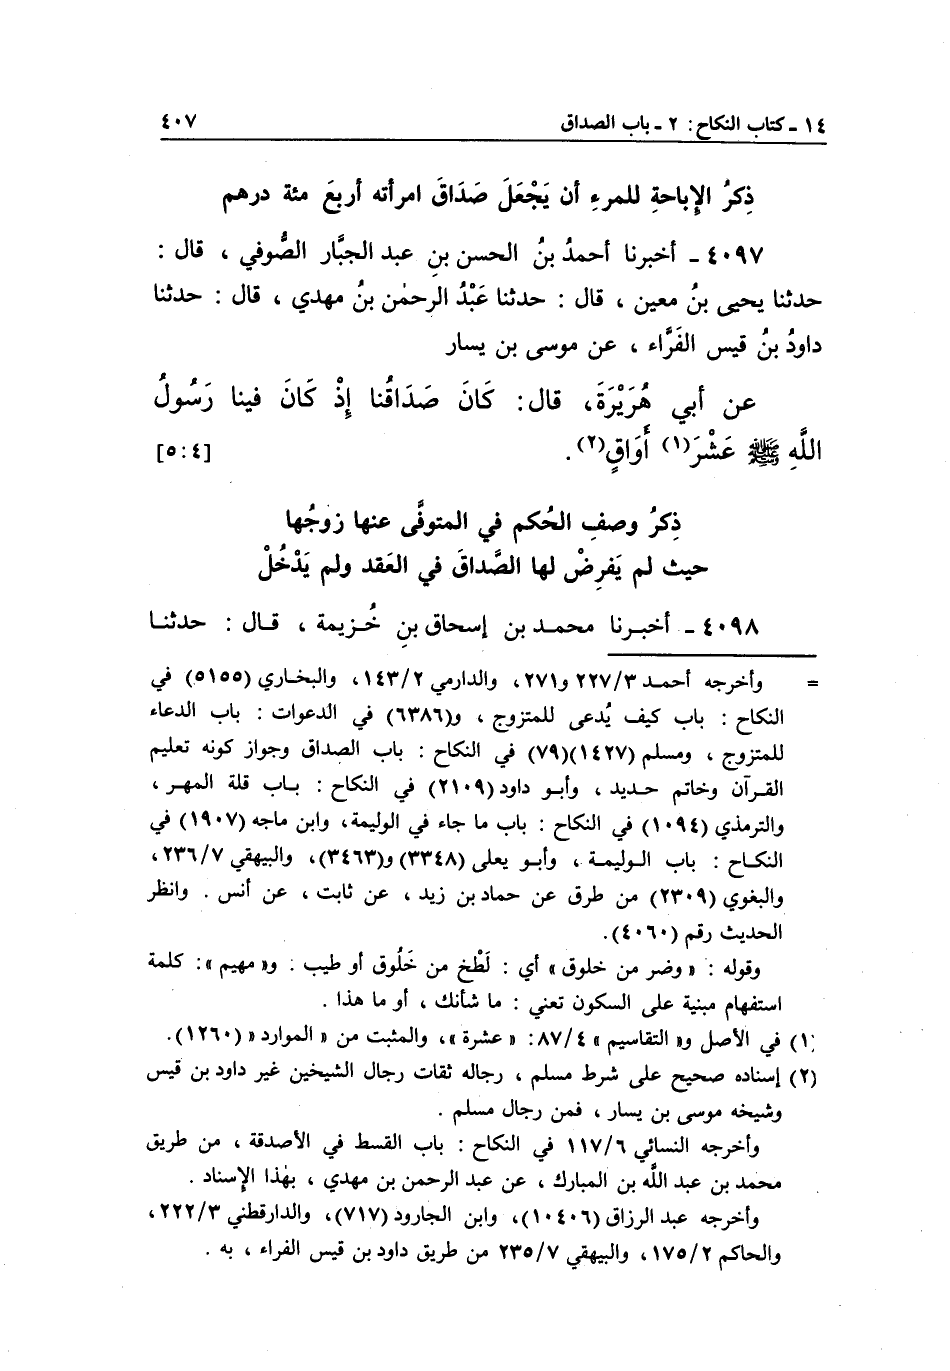 ١٤ ـ كتاب النكاح: ٢ ـ باب الصداق ٤٠٧
ذِكرُ الإِباحةِ للمرءِ أن يَجْعَلَ صَدَاقَ امرأته أربعَ مئة درهم
٤٠٩٧ ـ أخبرنا أحمدُ بنُ الحسن بنِ عبد الجبَّار الصُّوفي ، قال :
حدثنا يحيى بنُ معين ، قال : حدثنا عَبْدُ الرحمٰن بنُ مهدي ، قال : حدثنا
داودُ بنُ قيس الفَرَّاء ، عن موسى بن يسار
عن أبي هُرَيْرَةَ، قال: كَانَ صَدَاقُنا إِذْ كَانَ فينا رَسُولُ
اللَّهِ ﷺ عَشْرَ(١) أَوَاقٍ(٢). [٤:٥]
ذِكرُ وصفِ الحُكم في المتوفَّى عنها زوجُها
حيث لم يَفرِضْ لها الصَّداقَ في العَقد ولم يَدْخُلْ
٤٠٩٨ ـ أخبرنا محمد بن إسحاق بنِ خُزيمة ، قال : حدثنا
= وأخرجه أحمد ٢٢٧/٣ و٢٧١، والدارمي ١٤٣/٢، والبخاري (٥١٥٥) في
النكاح : باب كيف يُدعى للمتزوج ، و(٦٣٨٦) في الدعوات : باب الدعاء
للمتزوج ، ومسلم (١٤٢٧)(٧٩) في النكاح : باب الصداق وجواز كونه تعليم
القرآن وخاتم حديد ، وأبو داود (٢١٠٩) في النكاح : باب قلة المهر ،
والترمذي (١٠٩٤) في النكاح : باب ما جاء في الوليمة، وابن ماجه (١٩٠٧) في
النكاح : باب الوليمة ، وأبو يعلى (٣٣٤٨) و(٣٤٦٣)، والبيهقي ٢٣٦/٧،
والبغوي (٢٣٠٩) من طرق عن حماد بن زيد ، عن ثابت ، عن أنس . وانظر
الحديث رقم (٤٠٦٠).
وقوله : « وضر من خلوق » أي : لَطْخ من خَلُوق أو طيب . و« مهيم »: كلمة
استفهام مبنية على السكون تعني : ما شأنك ، أو ما هذا .
(١) في الأصل و« التقاسيم » ٨٧/٤: « عشرة »، والمثبت من « الموارد » (١٢٦٠).
(٢) إسناده صحيح على شرط مسلم ، رجاله ثقات رجال الشيخين غير داود بن قيس
وشيخه موسى بن يسار ، فمن رجال مسلم .
وأخرجه النسائي ١١٧/٦ في النكاح : باب القسط في الأصدقة ، من طريق
محمد بن عبد اللَّه بن المبارك ، عن عبد الرحمن بن مهدي ، بهٰذا الإِسناد .
وأخرجه عبد الرزاق (١٠٤٠٦)، وابن الجارود (٧١٧)، والدارقطني ٢٢٢/٣،
والحاكم ١٧٥/٢، والبيهقي ٢٣٥/٧ من طريق داود بن قيس الفراء ، به .